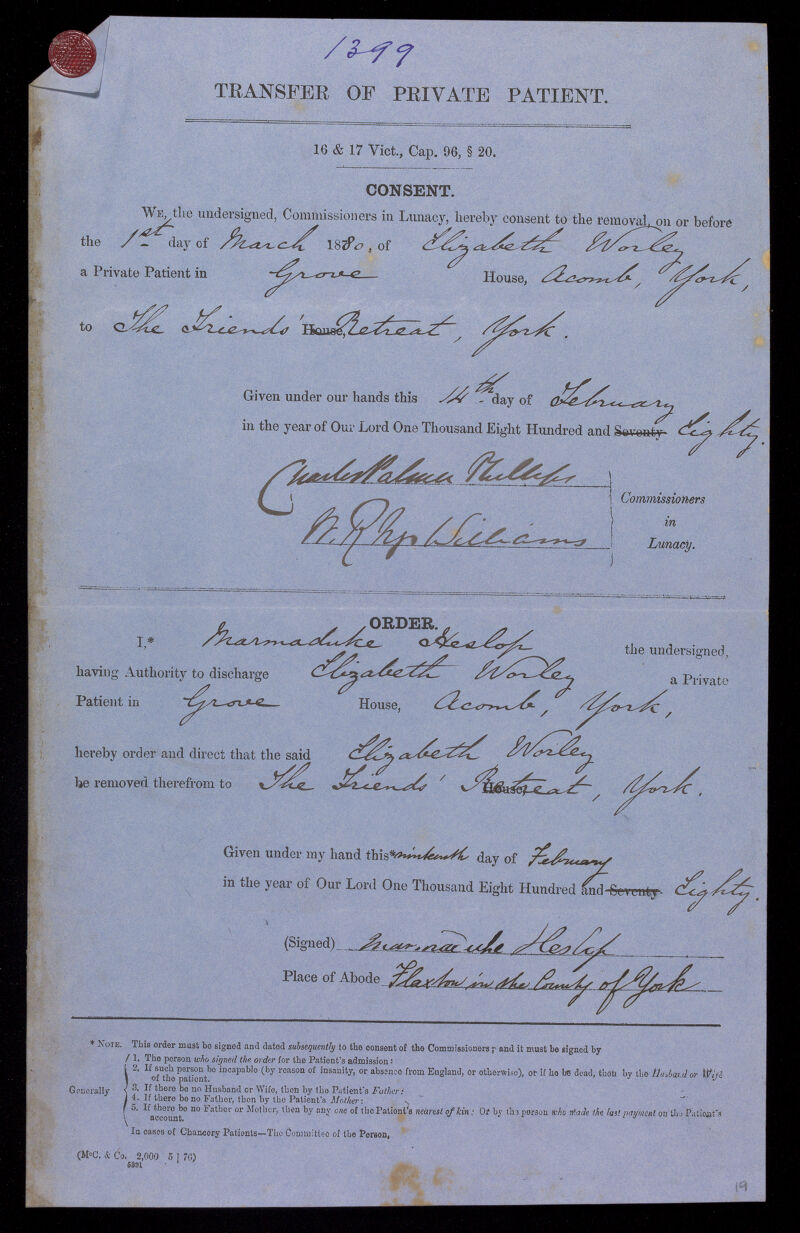 1399
TRANSFER OF PRIVATE PATIENT.
16 & 17 Vict., Cap. 96, § 20.
CONSENT.
WE, the undersigned, Commissioners in Lunacy, hereby consent to the removal, on or before
the 1st day of March 1880, of Elizabeth Worley
a Private Patient in Grove House, Acomb, York,
to The Friends' House, Retreat, York.
Given under our hands this 14th day of February
in the year of Our Lord One Thousand Eight Hundred and Seventy Eighty.
Charles Palmer Phillips
W. Rhys Williams
Commissioners
in
Lunacy.
ORDER.
I,* Marmaduke Heslop the undersigned,
having Authority to discharge Elizabeth Worley a Private
Patient in Grove House, Acomb, York,
hereby order and direct that the said Elizabeth Worley
be removed therefrom to The Friends' House, Retreat, York.
Given under my hand this* nineteenth day of February
in the year of Our Lord One Thousand Eight Hundred and Seventy Eighty.
(Signed) Marmaduke Heslop
Place of Abode Flaxton in the County of York
* NOTE. This order must be signed and dated subsequently to the consent of the Commissioners; and it must be signed by
Generally
1. The person who signed the order for the Patient's admission:
2. If such person be incapable (by reason of insanity, or absence from England, or otherwise), or if he be dead, then by the Husband or Wife
of the patient.
3. If there be no Husband or Wife, then by the Patient's Father:
4. If there be no Father, then by the Patient's Mother:
5. If there be no Father or Mother, then by any one of the Patient's nearest of kin: Or by the person who made the last payment on the Patient's
account.
In cases of Chancery Patients—The Committee of the Person,
(McC. & Co. 2,000 5 | 76)
5391
19